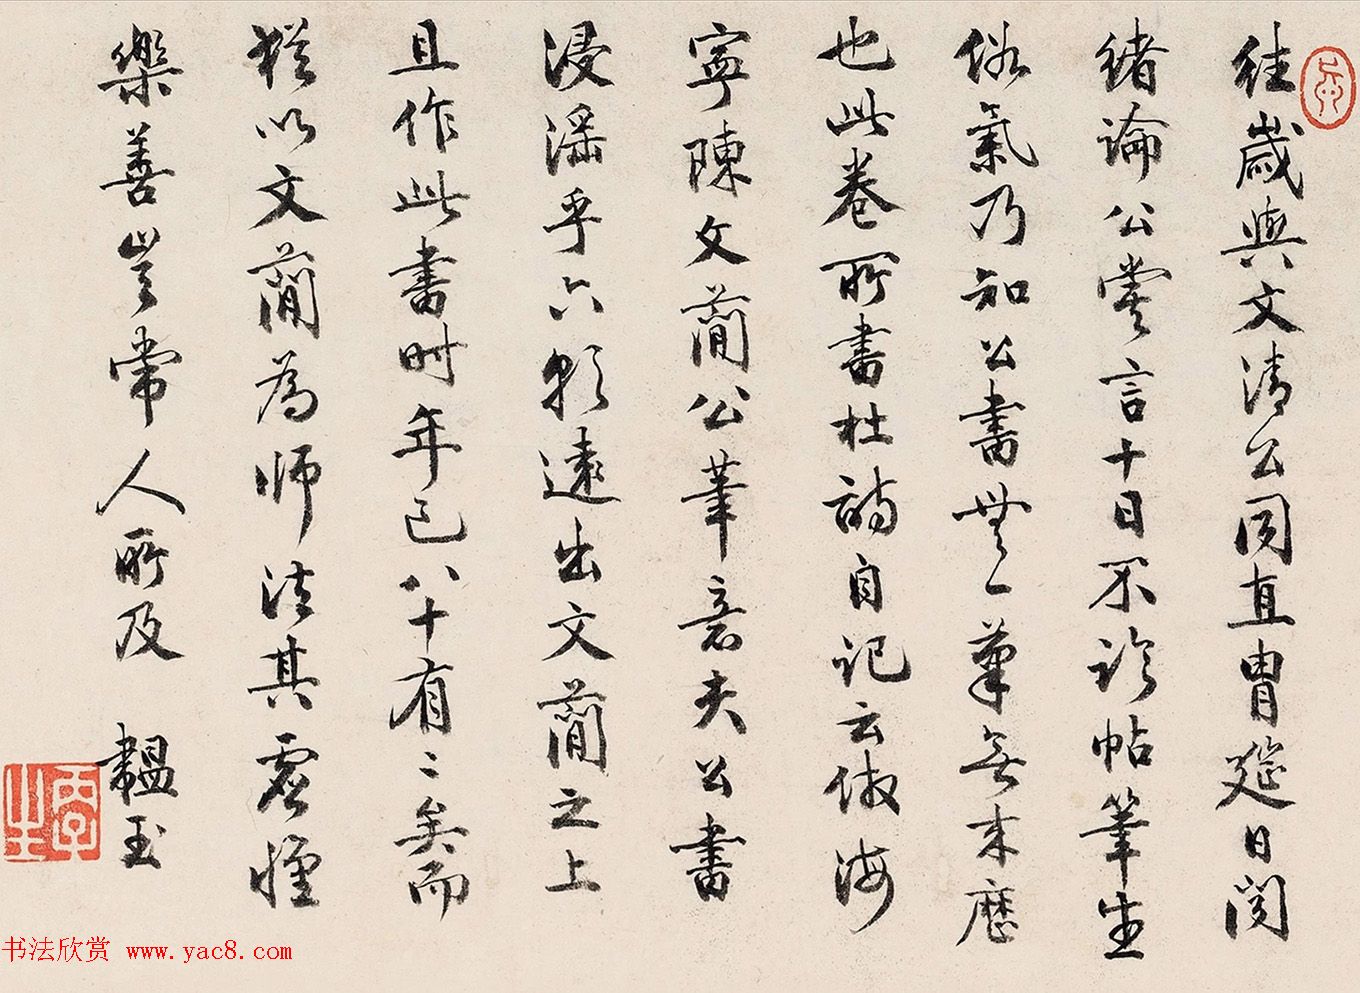 往歲與文清公同直胄筵日聞
緒論公嘗言十日不臨帖筆生
俗氣乃知公書無一筆無来歷
也此卷所書杜詩自記云倣海
寧陳文蕳公筆意夫公書
浸淫乎六朝遠出文蕳之上
且作此書時年已八十有二矣而
猶以文蕳為師法其虛懷
樂善豈常人所及 韞玉
书法欣赏 www.yac8.com